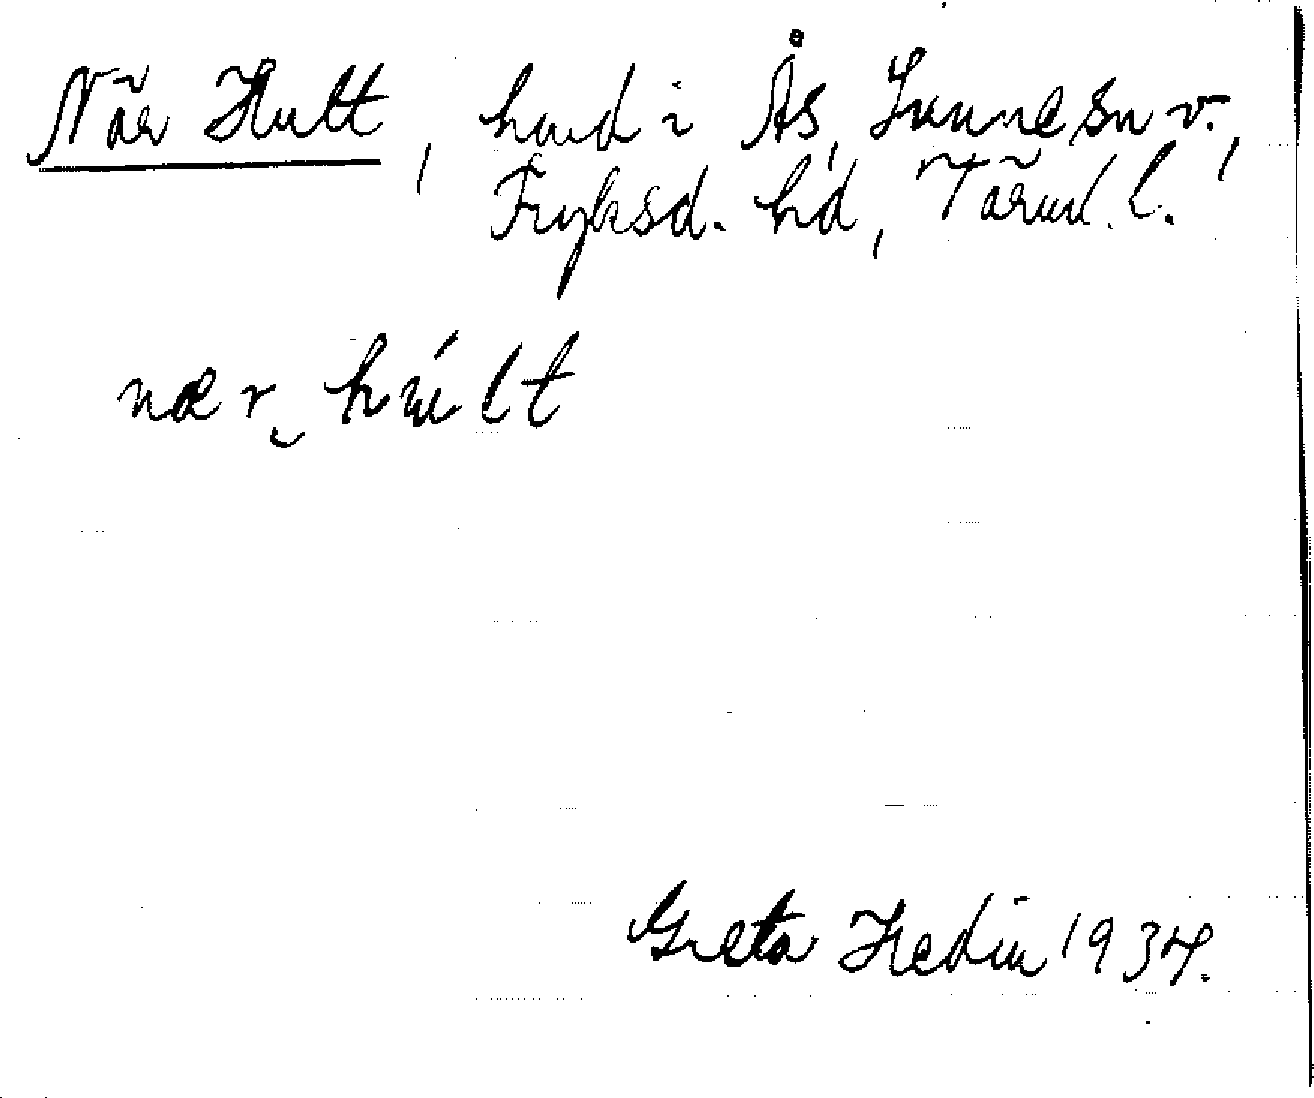 När Hult, hmd i Ås, Sunne sn v.,
Fryksd. hd, Värml. l.
nær‿húlt
Greta Hedin 1934.